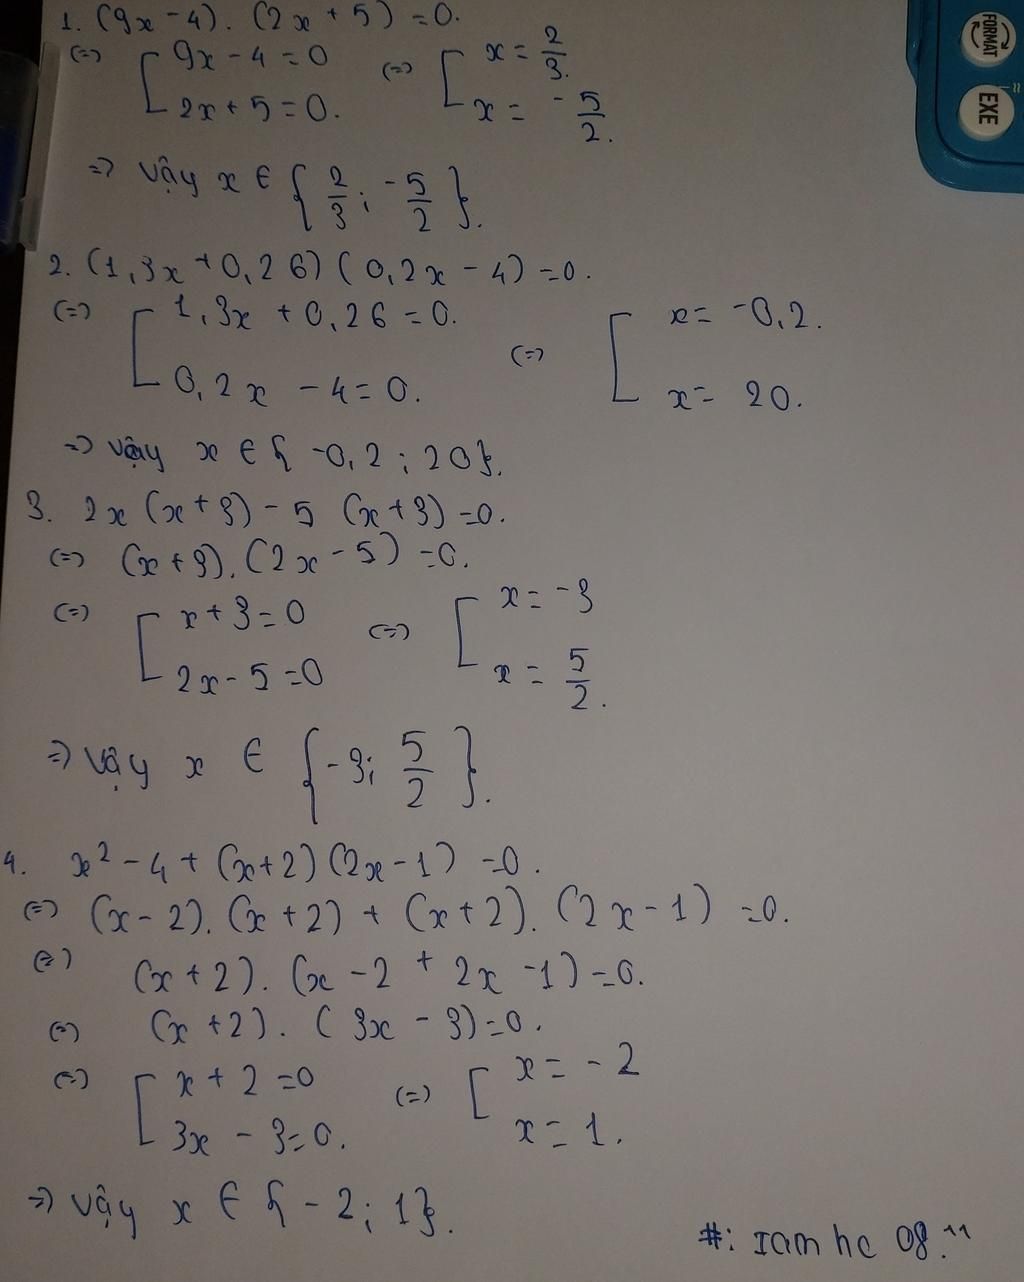 1. (9x - 4). (2x + 5) = 0.
(=) [ 9x - 4 = 0 (=) [ x = 2/3.
2x + 5 = 0. x = -5/2.
=) Vậy x ∈ { 2/3 ; -5/2 }.
2. (1,3x + 0,26) (0,2x - 4) = 0.
(=) [ 1,3x + 0,26 = 0. (=) [ x = -0,2.
0,2x - 4 = 0. x = 20.
=) Vậy x ∈ { -0,2 ; 20 }.
3. 2x (x + 3) - 5 (x + 3) = 0.
(=) (x + 3). (2x - 5) = 0.
(=) [ x + 3 = 0 (=) [ x = -3
2x - 5 = 0 x = 5/2.
=) Vậy x ∈ { -3 ; 5/2 }.
4. x² - 4 + (x + 2) (2x - 1) = 0.
(=) (x - 2). (x + 2) + (x + 2). (2x - 1) = 0.
(=) (x + 2). (x - 2 + 2x - 1) = 0.
(=) (x + 2). (3x - 3) = 0.
(=) [ x + 2 = 0 (=) [ x = -2
3x - 3 = 0. x = 1.
=) Vậy x ∈ { -2 ; 1 }.
#: Iam hc 08.^^
FORMAT
EXE
≈